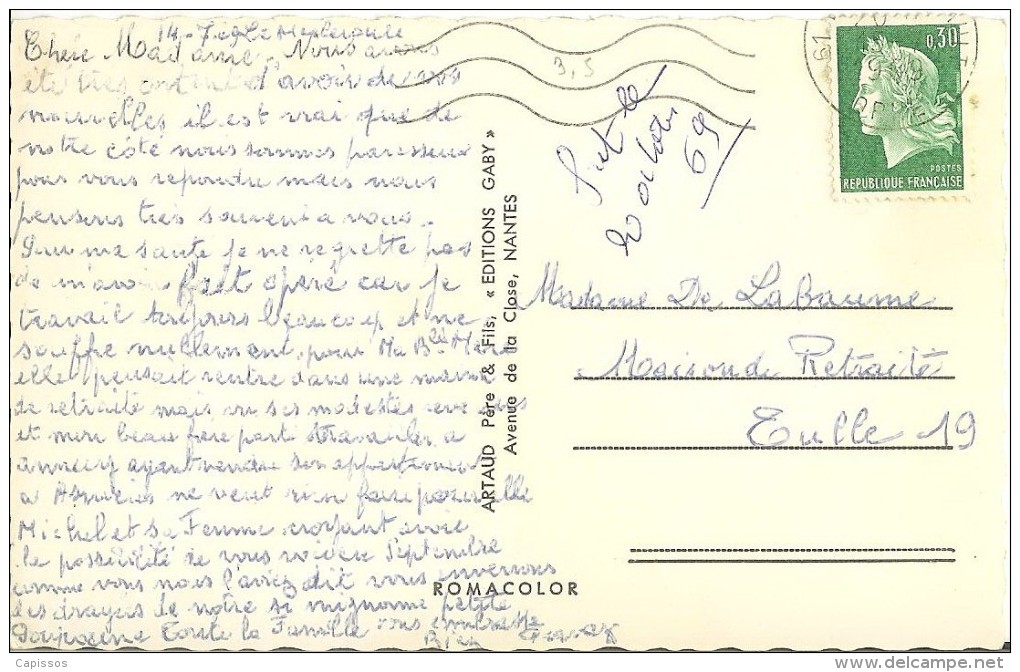 Chère Madame, Nous avons
été très content d'avoir de vos
nouvelles il est vrai que de
notre côté nous sommes paresseux
pour vous repondre mais nous
pensons très souvent a vous.
Pour ma santé je ne regrette pas
de m'avoir fait opéré car je
travail toujours beaucoup et ne
souffre nullement, pour Ma Blle Mère
elle pensait rentre dans une maison
de retraite mais vu ses modestes revenus
et mon beau frère parti travailler a
Annecy ayant vendu son appartement
a Asnières ne veut rien faire pour elle
Michel et sa Femme croyant avoir
la possibilité de vous voir en Septembre
comme vous nous l'aviez dit vous enverrons
des dragées de notre si mignonne petite
Toute la Famille vous embrasse
Bien
3,5
69
0,30
POSTES
REPUBLIQUE FRANÇAISE
ARTAUD Père & Fils, « EDITIONS GABY »
Avenue de la Close, NANTES
Madame De LaBaume
Maison de Retraite
Tulle 19
ROMACOLOR
Capissos
delcampe.net